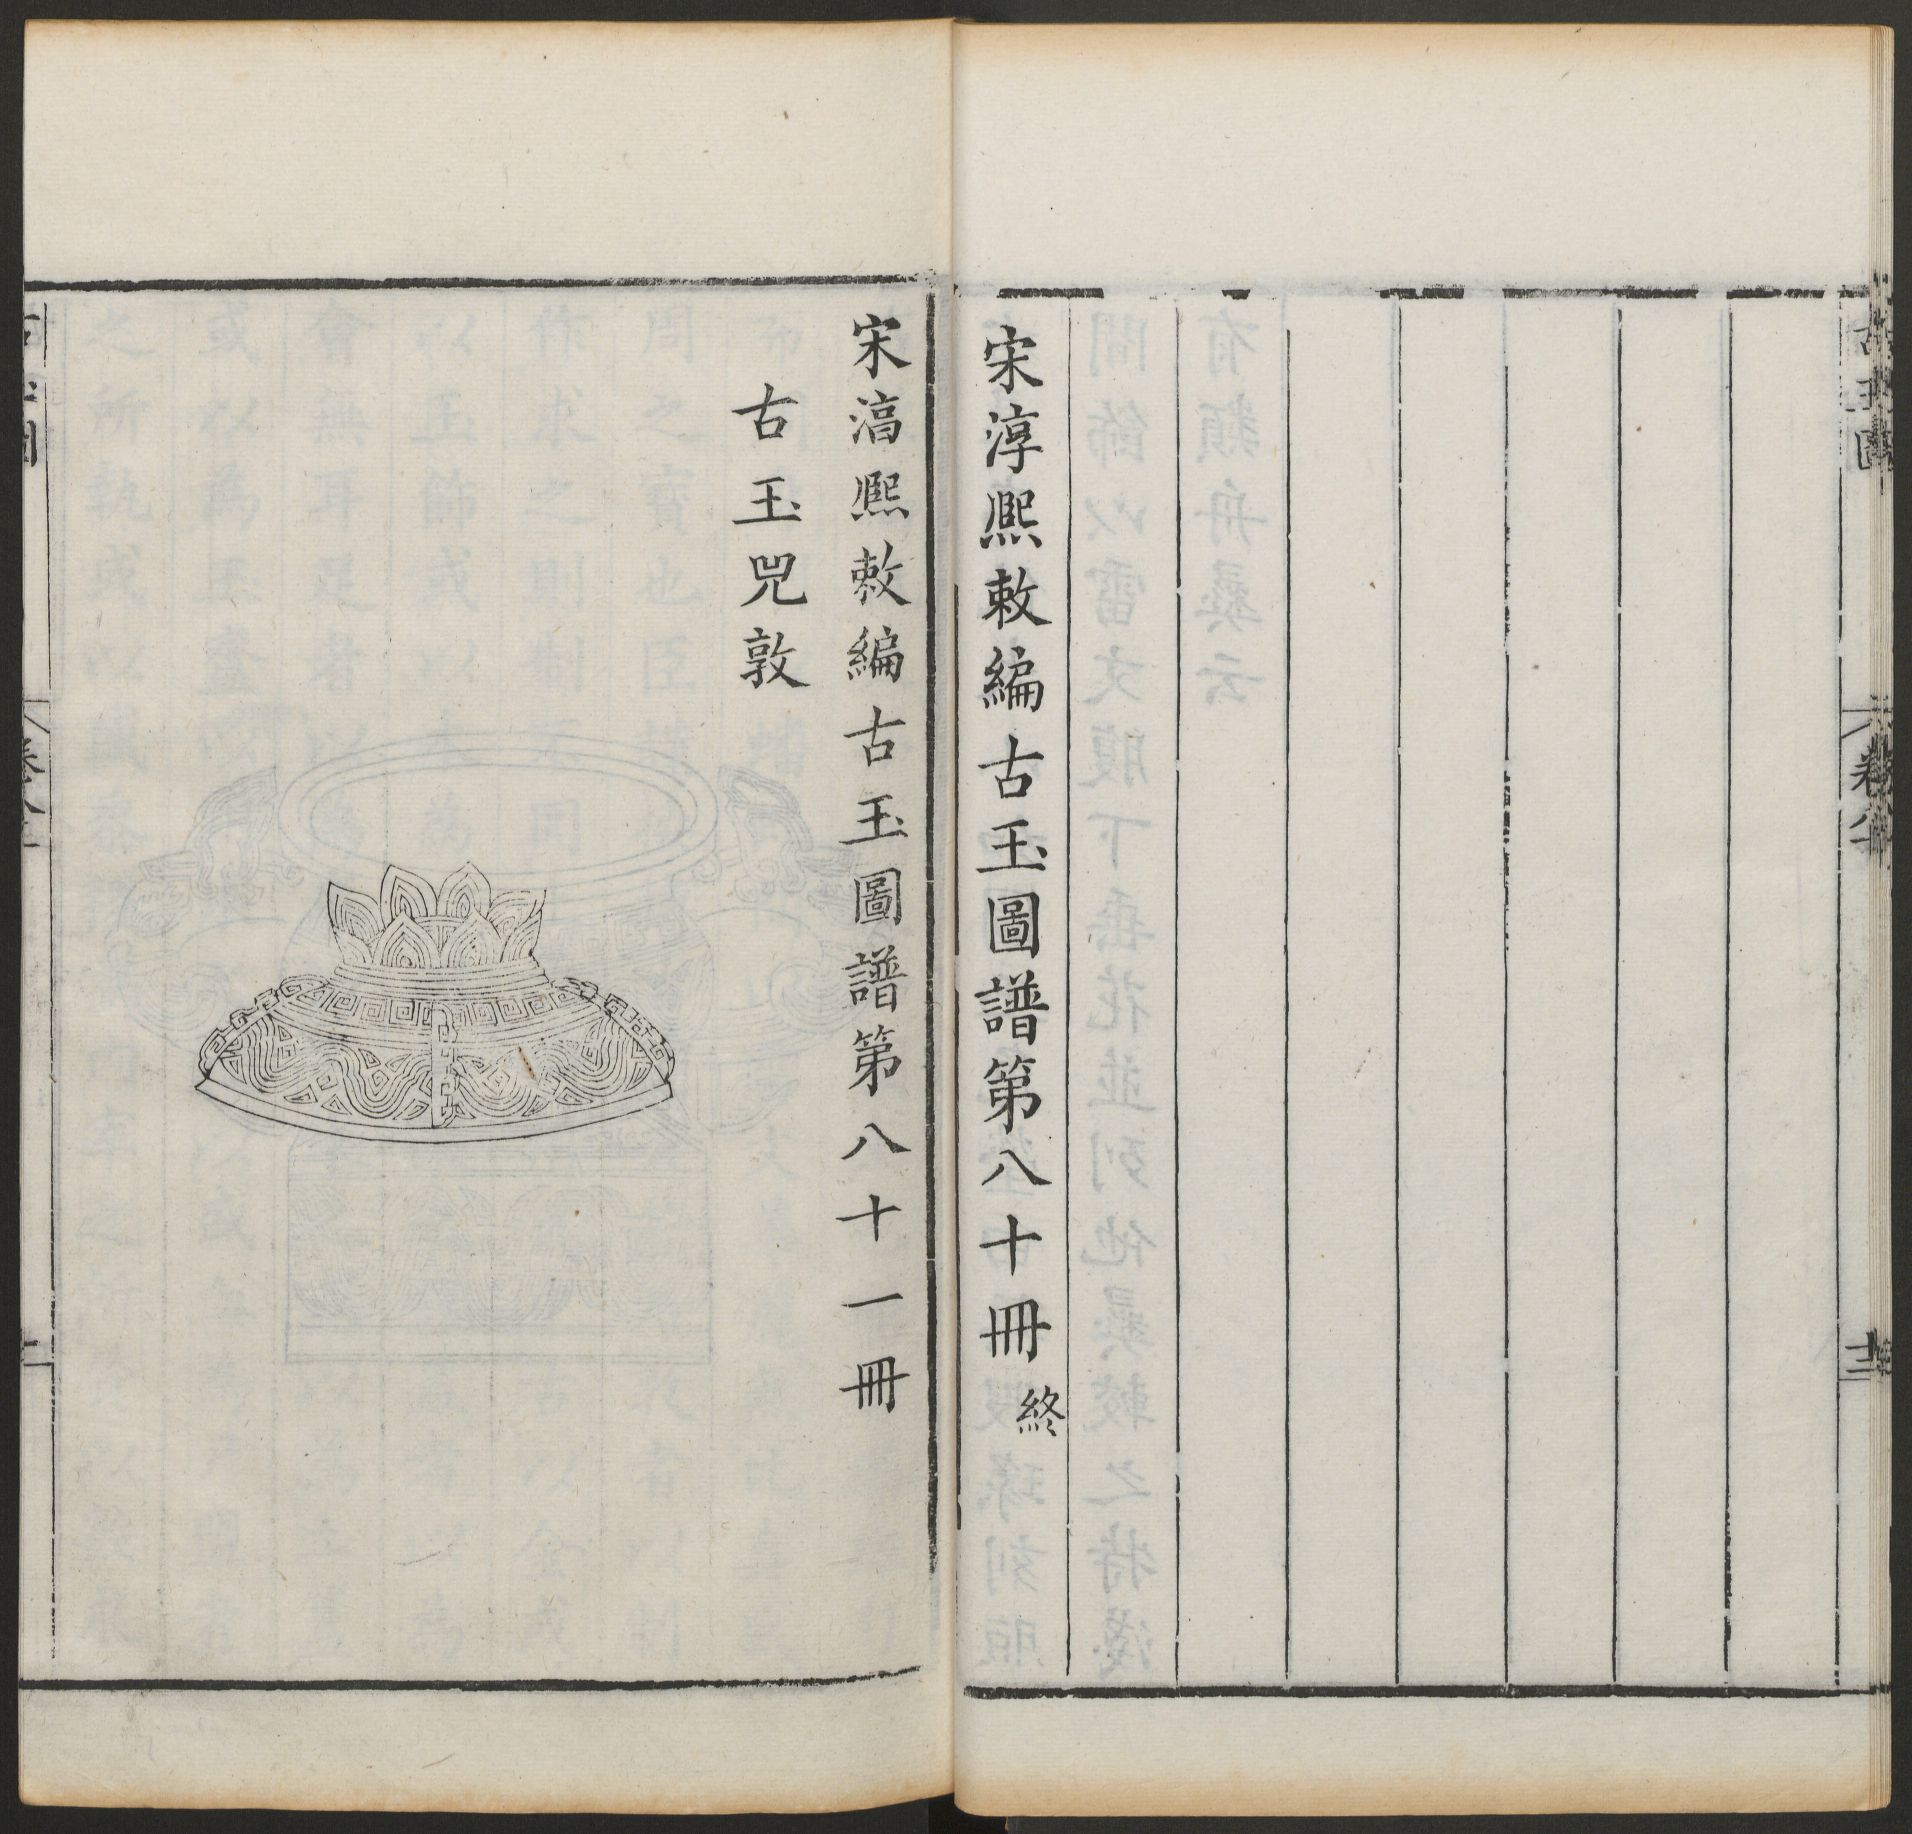 宋淳熈敕編古玉圖譜第八十冊終
宋湻熈敕編古玉圖譜第八十一冊
古玉兕敦